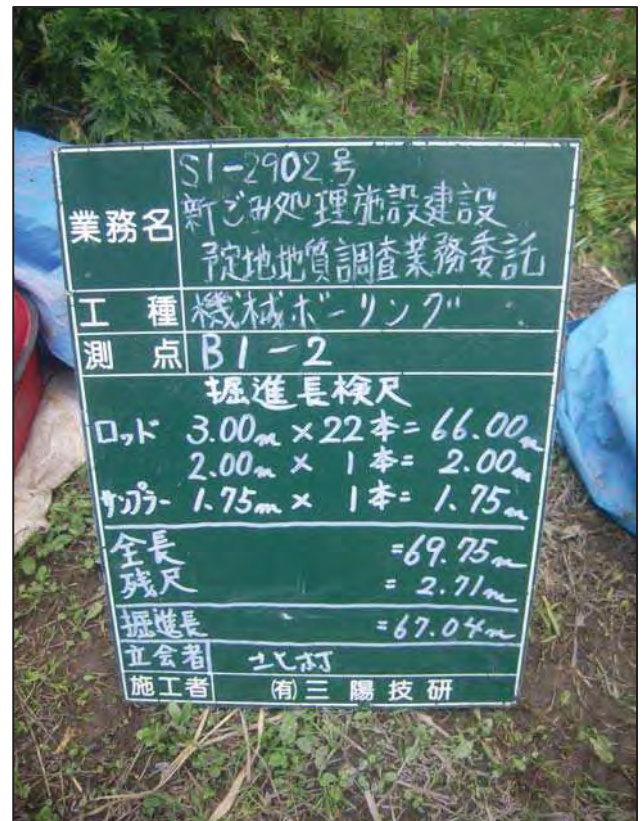 業務名 S1-2902号
新ごみ処理施設建設
予定地地質調査業務委託
工種 機械ボーリング
測点 B1-2
掘進長検尺
ロッド 3.00m×22本=66.00m
2.00m×1本=2.00m
サンプラー 1.75m×1本=1.75m
全長 =69.75m
残尺 =2.71m
掘進長 =67.04m
立会者 北村
施工者 (有)三陽技研